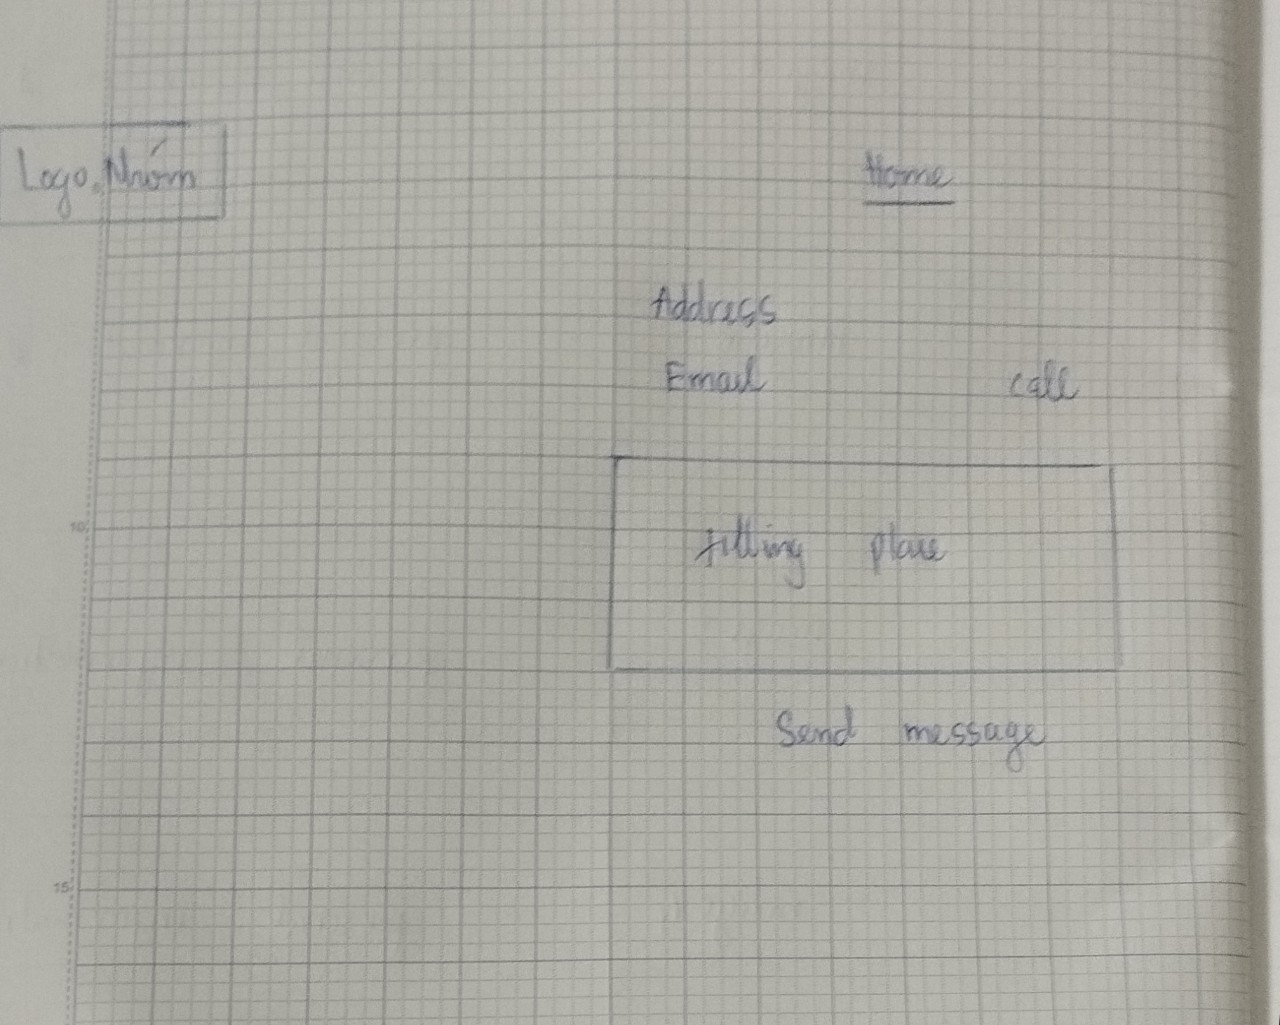 Logo Nhóm
Home
Address
Email
call
filling place
Send message
10
15